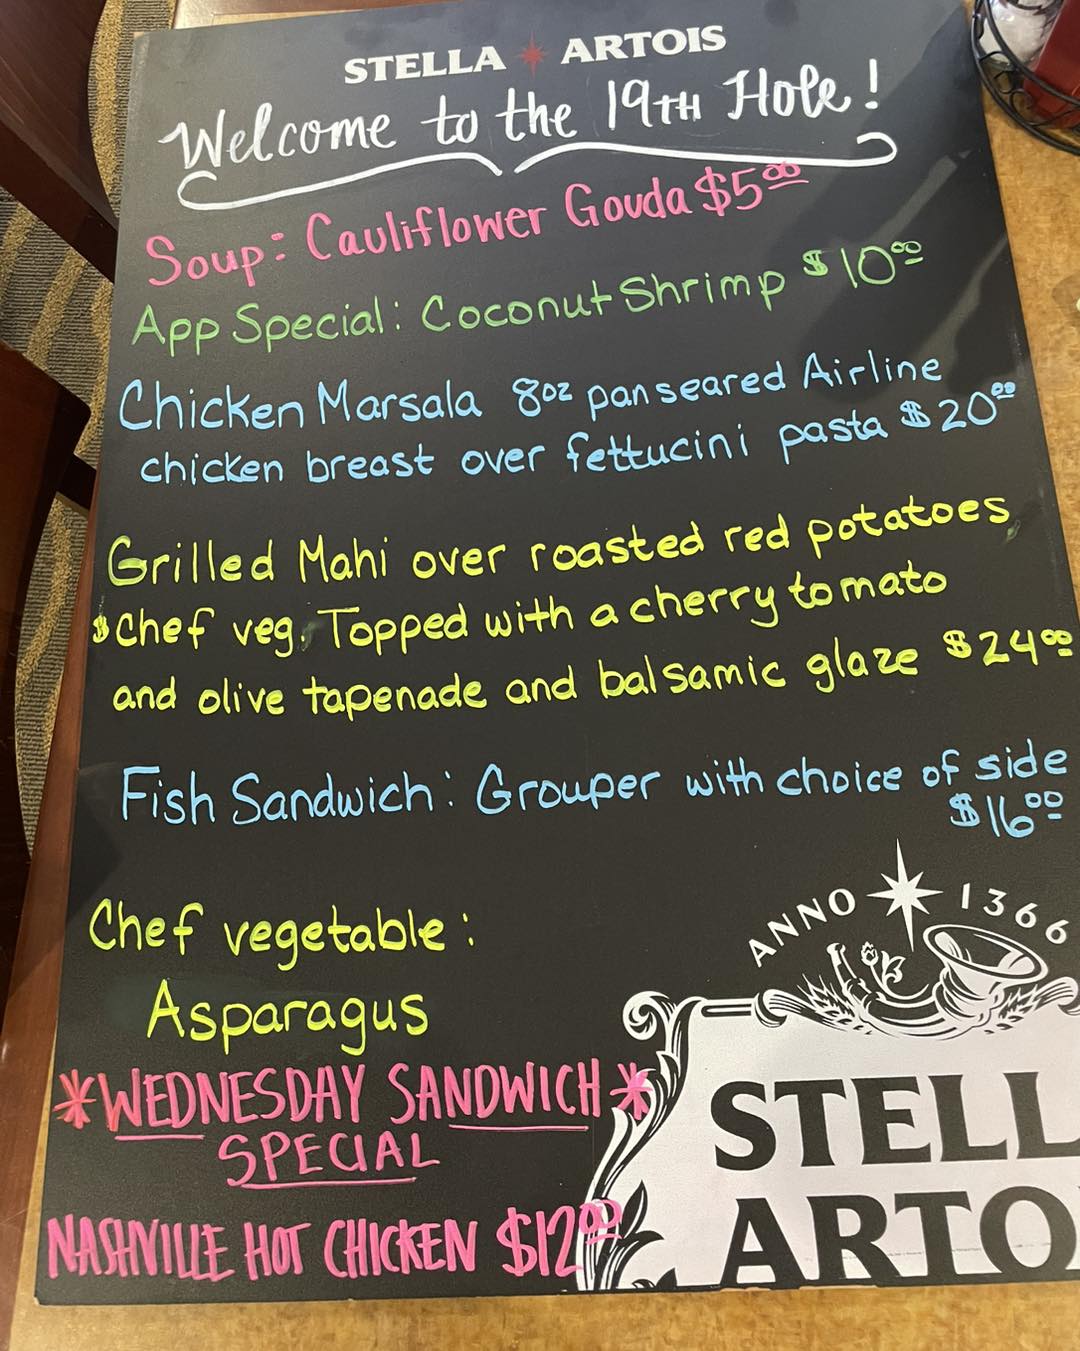 STELLA ARTOIS
Welcome to the 19TH Hole!
Soup: Cauliflower Gouda $5.00
App Special: Coconut Shrimp $10.00
Chicken Marsala 8oz pan seared Airline
chicken breast over fettucini pasta $20.00
Grilled Mahi over roasted red potatoes
& chef veg. Topped with a cherry tomato
and olive tapenade and balsamic glaze $24.00
Fish Sandwich: Grouper with choice of side
$16.00
Chef vegetable:
Asparagus
*WEDNESDAY SANDWICH*
SPECIAL
NASHVILLE HOT CHICKEN $12.00
ANNO 1366
STELL
ARTO